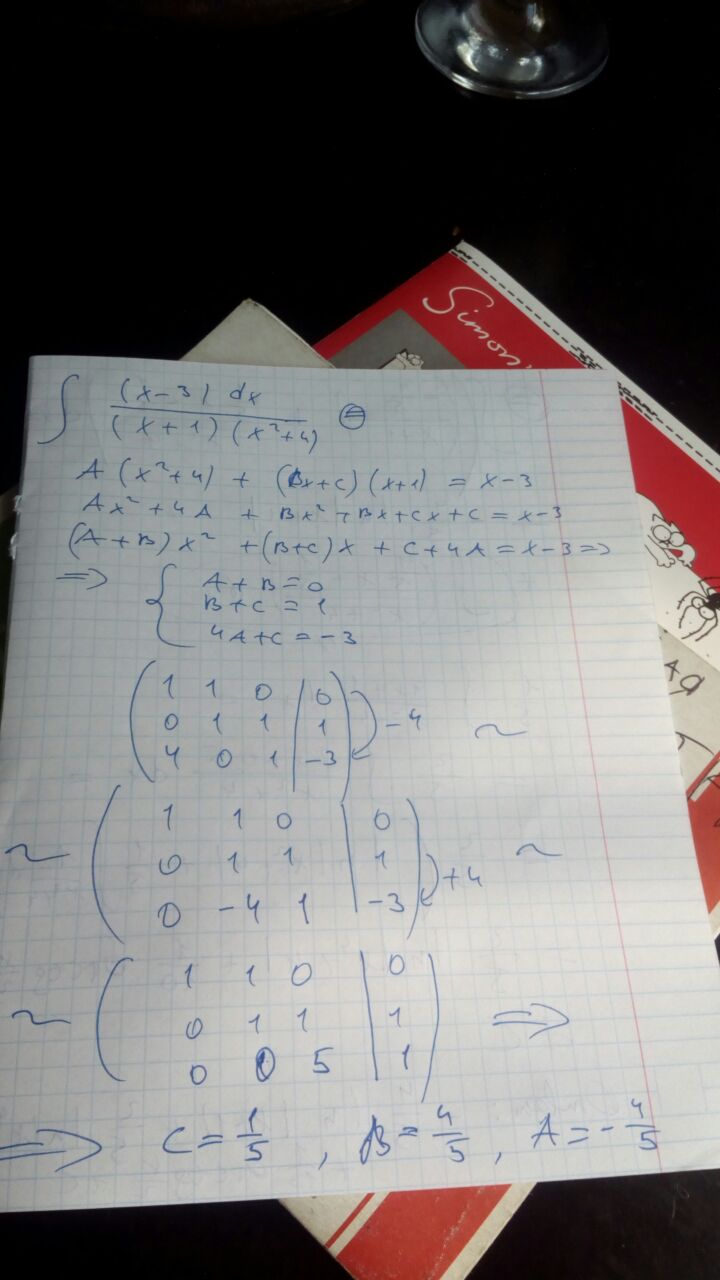 Simon'
∫ (x-3) dx / (x+1)(x²+4) ⊜
A(x²+4) + (Bx+C)(x+1) = x-3
Ax² + 4A + Bx² + Bx + Cx + C = x-3
(A+B)x² + (B+C)x + C + 4A = x-3 =>
=> { A+B=0
B+C=1
4A+C=-3
( 1 1 0 | 0 )
0 1 1 | 1 -4 ~
4 0 1 | -3
~ ( 1 1 0 | 0 )
0 1 1 | 1 +4 ~
0 -4 1 | -3
~ ( 1 1 0 | 0 )
0 1 1 | 1 =>
0 0 5 | 1
=> C = 1/5 , B = 4/5 , A = - 4/5